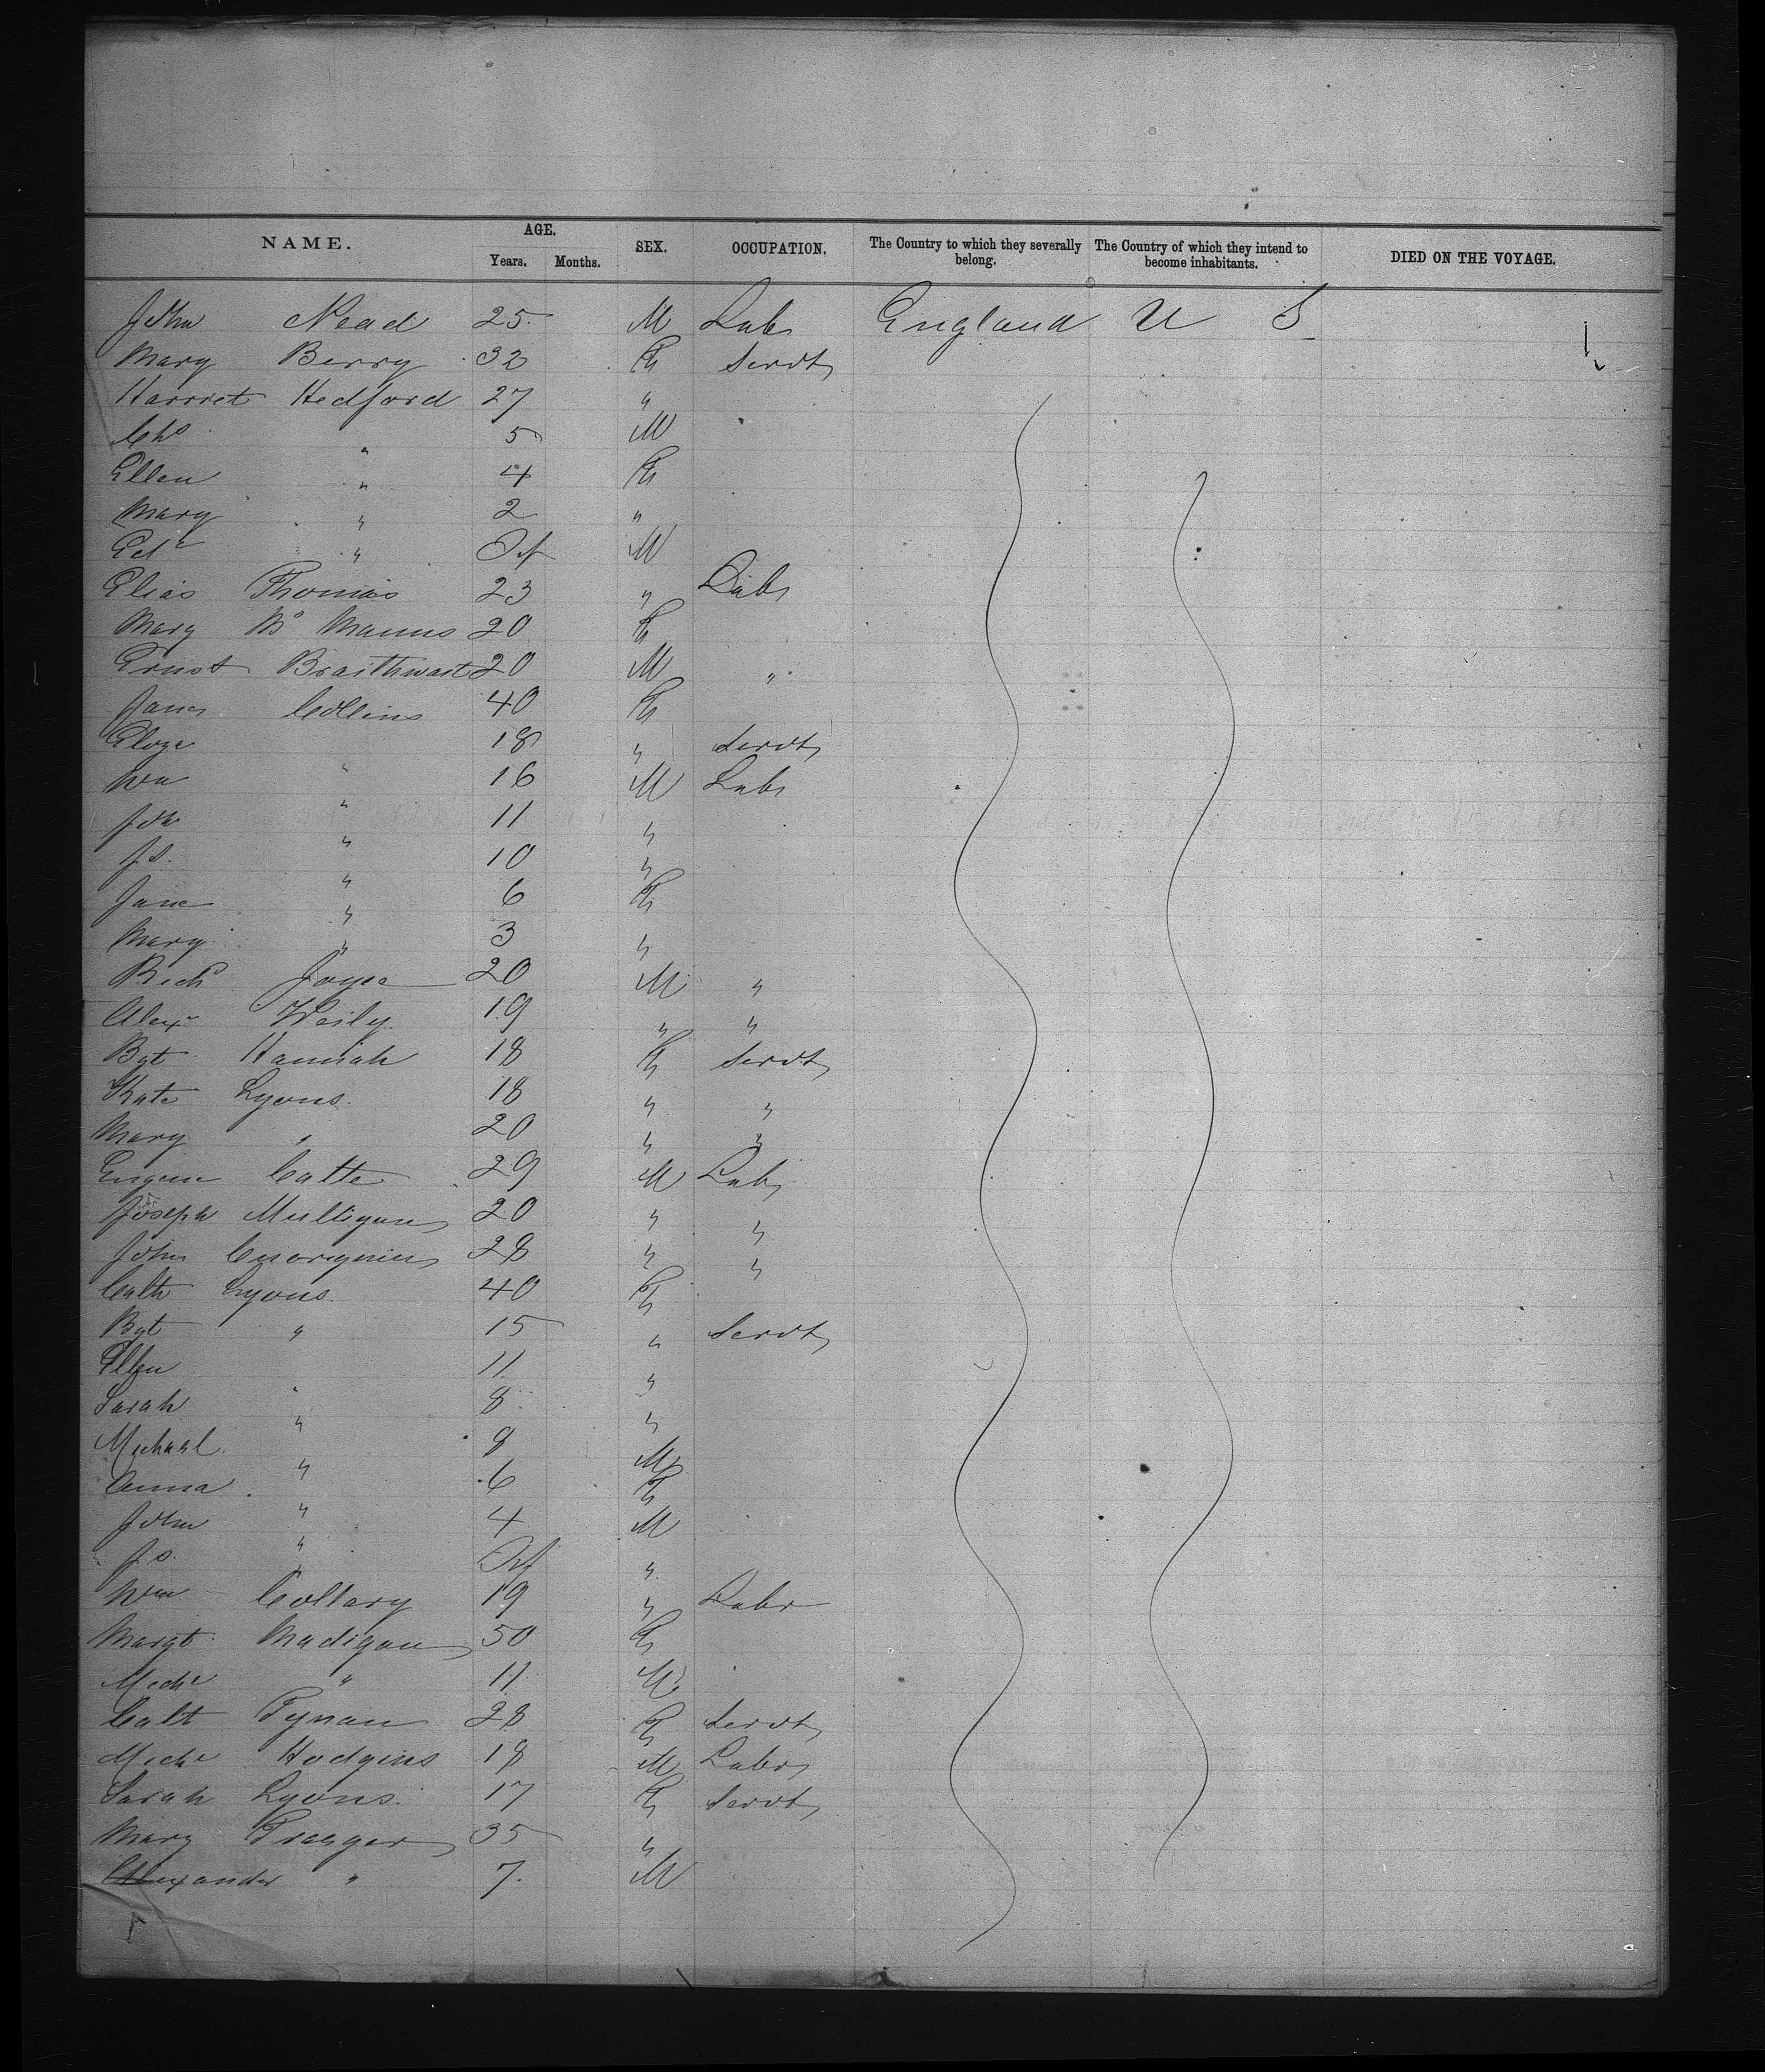 NAME. AGE. Years. Months. SEX. OCCUPATION. The Country to which they severally belong. The Country of which they intend to become inhabitants. DIED ON THE VOYAGE.
John Nead 25 M Labr England U S
Mary Berry 32 F Servt
Harriet Hedford 27 "
Chs " 5 M
Ellen " 4 F
Mary " 2 "
Edd " Inf M
Elias Thomas 23 " Labr
Mary Mc Manus 20 F
Ernst Braithwait 20 M "
Jane Collins 40 F
Eliza 18 " Servt
Wm " 16 M Labr
Jon " 11 "
Js. " 10 "
Jane " 6 F
Mary " 3 "
Richd Joyce 20 M "
Alexr Weily 19 " "
Bgt Hannah 18 F Servt
Kate Lyons 18 " "
Mary " 20 " "
Eugene 29 M Labr
Joseph Mulligan 20 " "
John 28 " "
Cath Lyons 40 F
Bgt " 15 " Servt
Ellen 11 "
Sarah " 8 "
Michael " 9 M
Anna " 6 F
John " 4 M
Js. " Inf "
Wm Collary 19 " Labr
Margt Madigan 50 F
Michl " 11 M
Cath Tynan 28 F Servt
Michl Hodgins 18 M Labr
Sarah Lyons 17 F Servt
Mary 35 "
Alexander " 7 M